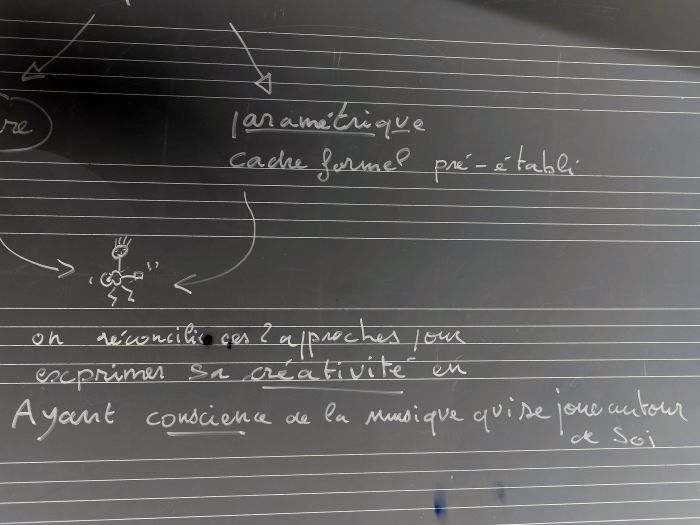 re
paramétrique
cadre formel pré-établi
on réconcilie ces 2 approches pour
exprimer sa créativité en
Ayant conscience de la musique qui se joue autour
de Soi